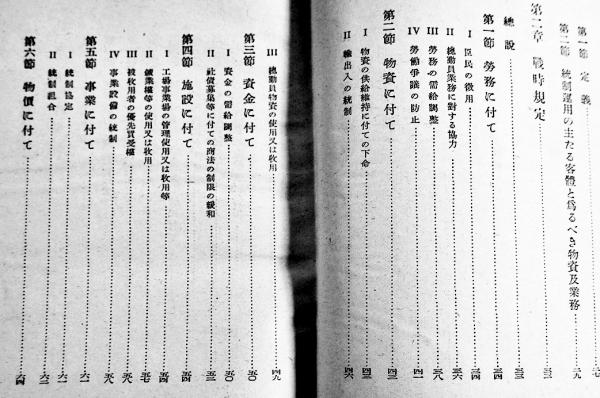 第一節 定義……七
第二節 統制運用の主たる客體と爲るべき物資及業務……元
第二章 戰時規定……三
總說……三
第一節 勞務に付て……三四
I 臣民の徵用……三四
II 總動員業務に對する協力……三六
III 勞務の需給調整……三八
IV 勞働爭議の防止……四一
第二節 物資に付て……四三
I 物資の供給維持に付ての下命……四三
II 輸出入の統制……四六
III 總動員物資の使用又は收用……四九
第三節 資金に付て……五〇
I 資金の需給調整……五〇
II 社債募集等に付ての商法の制限の緩和……五三
第四節 施設に付て……五四
I 工場事業場の管理使用又は收用等……五四
II 鑛業權等の使用又は收用……五七
III 被收用者の優先買受權……五八
IV 事業設備の統制……五九
第五節 事業に付て……六一
I 統制協定……六一
II 統制組合……六二
第六節 物價に付て……六四